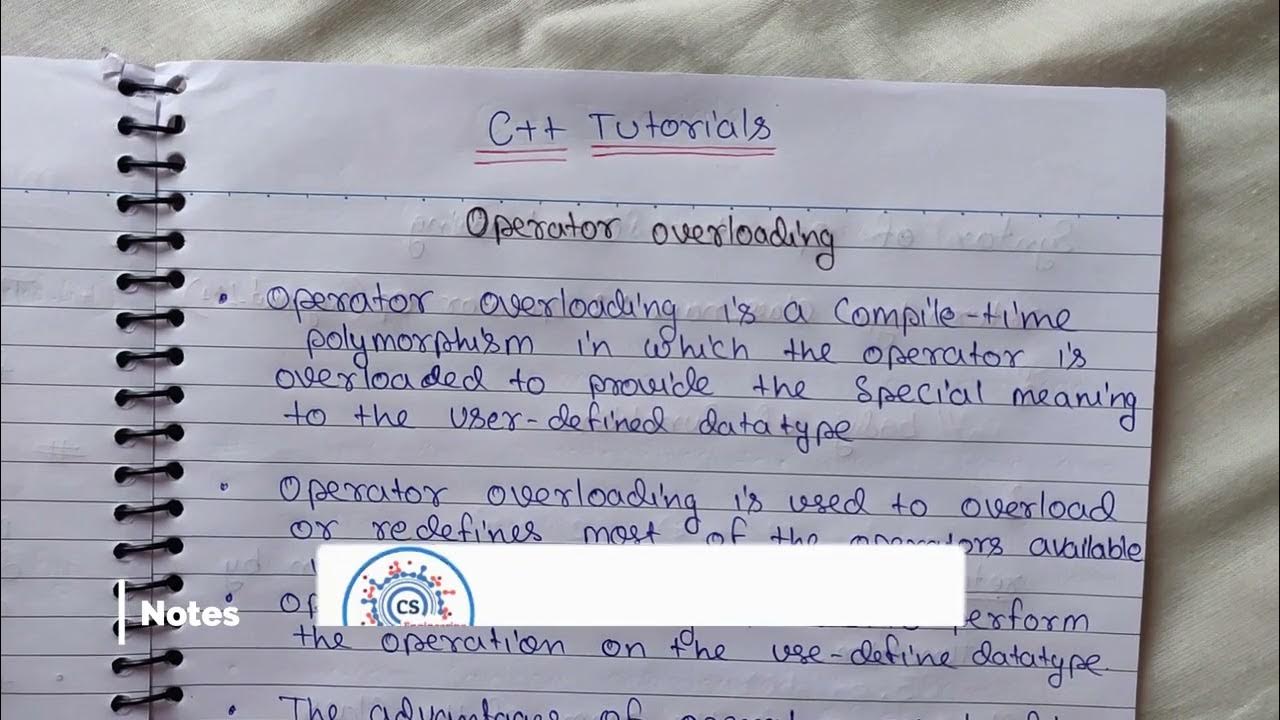 C++ Tutorials
Operator overloading
• Operator overloading is a Compile-time
polymorphism in which the operator is
overloaded to provide the Special meaning
to the user-defined datatype
• Operator overloading is used to overload
or redefines most of the operators available
Notes
CS
• Op erform
the operation on the use-define datatype.
• The advantage of